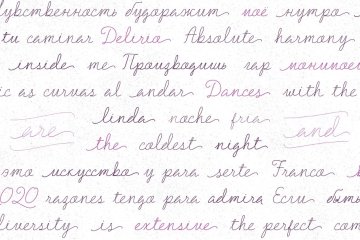 чувственность будоражит моё нутро
tu caminar Delirio Absolute harmony
inside me Производишь гар монипо
ic as curvas al andar Dances with the
are linda noche fria and
the coldest night
это искусство у para serte Franco
2020 razones tengo para admira Если быть
diversity is extensive the perfect com